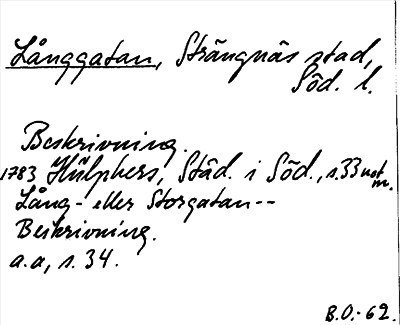 Långgatan, Strängnäs stad,
Söd. l.
Beskrivning.
1783 Hülphers, Städ. i Söd., s.33 not m.
Lång- eller Storgatan--
Beskrivning.
a.a, s. 34.
B.O.-62.